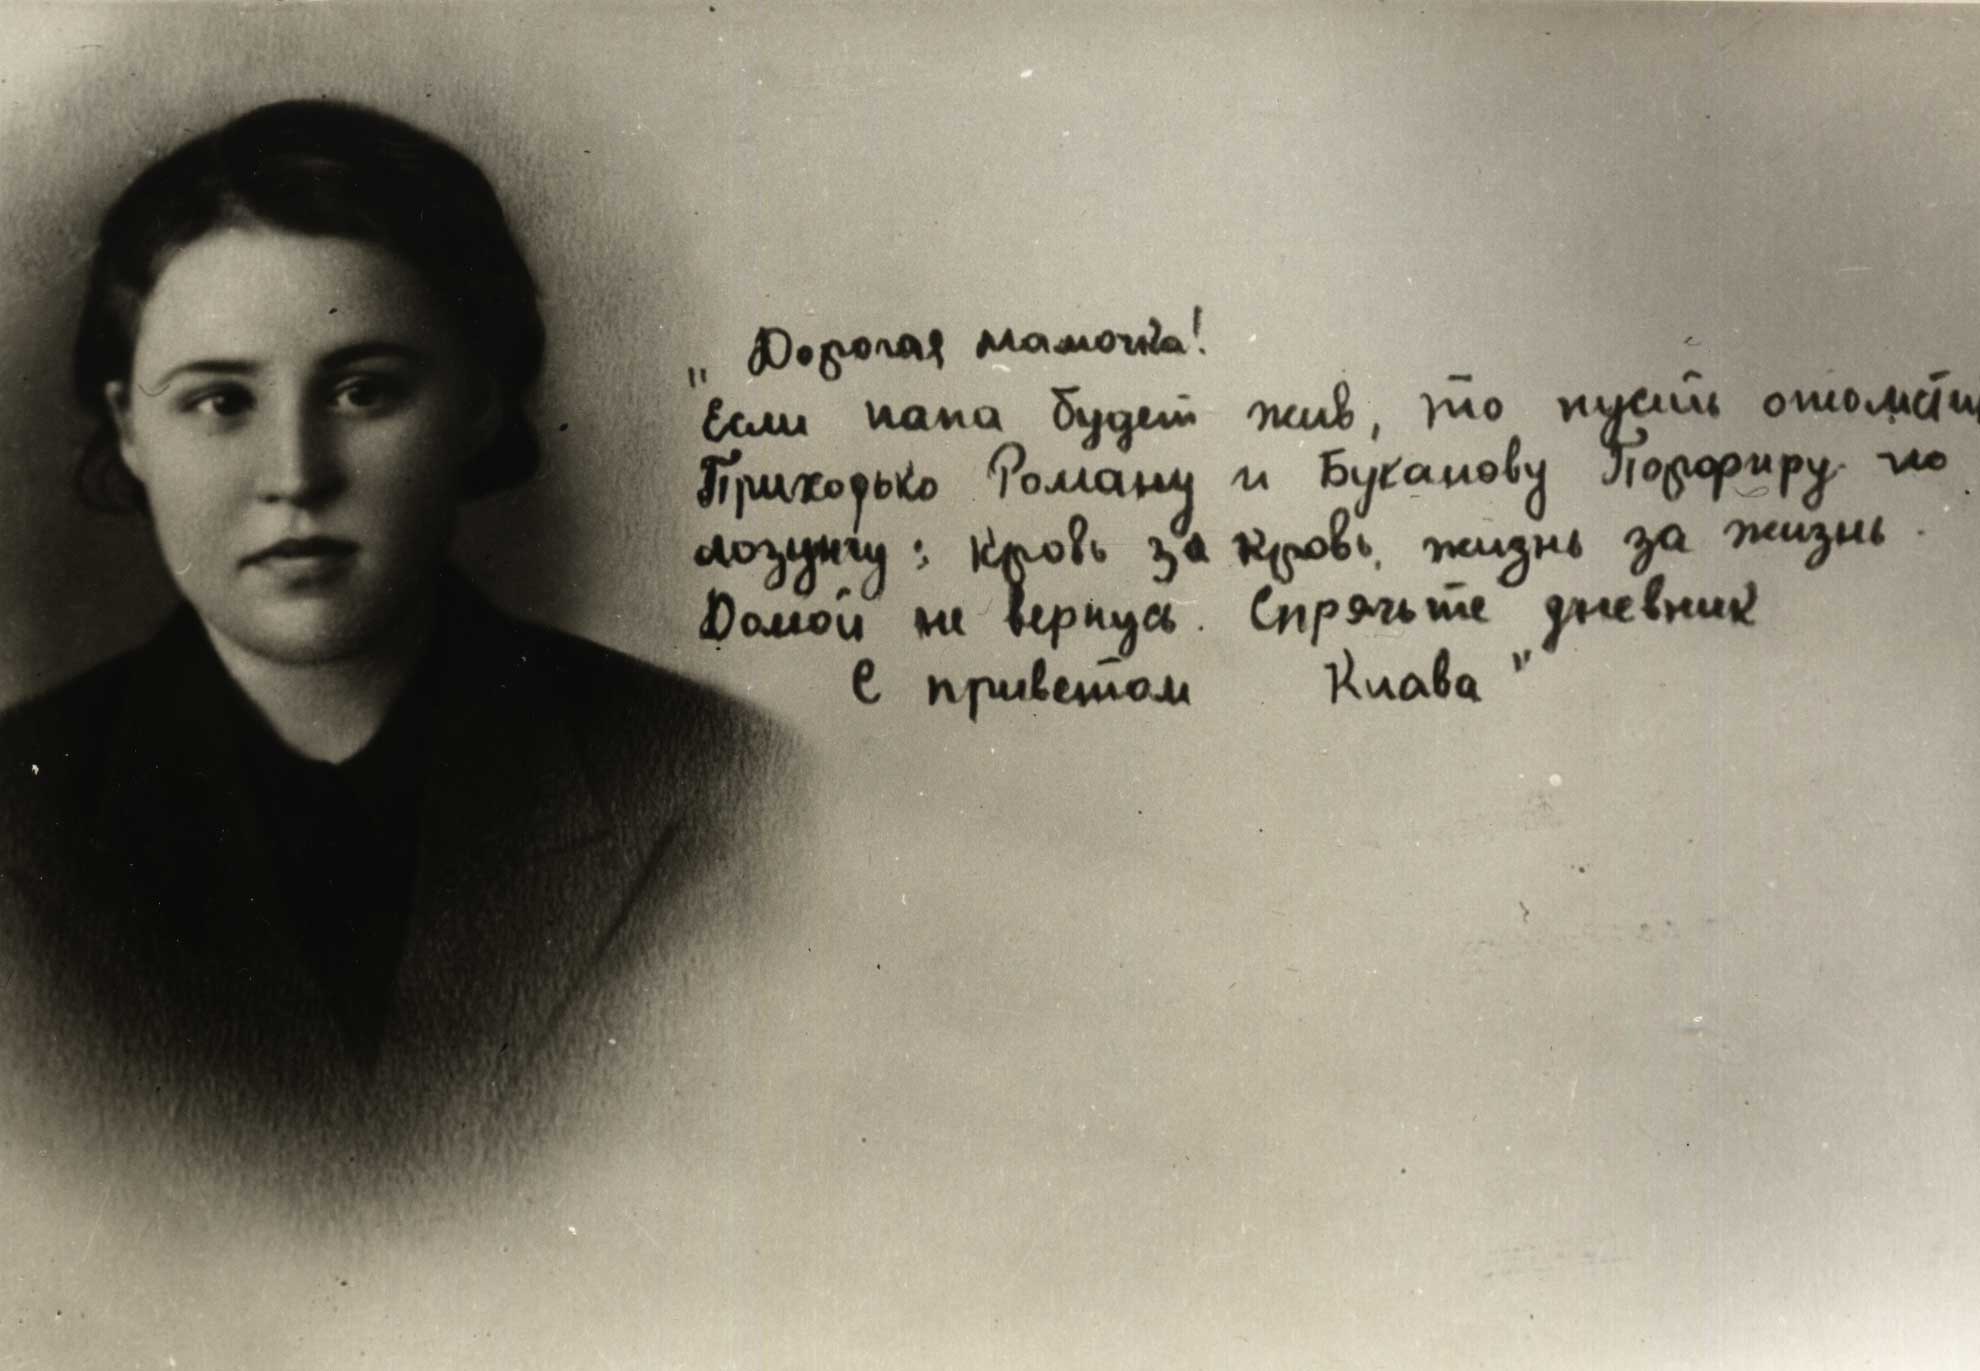 „ Дорогая мамочка!
Если папа будет жив, то пусть отомстит
Приходько Роману и Буканову Порфиру по
лозунгу: кровь за кровь, жизнь за жизнь.
Домой не вернусь. Спрячьте дневник
С приветом Клава"